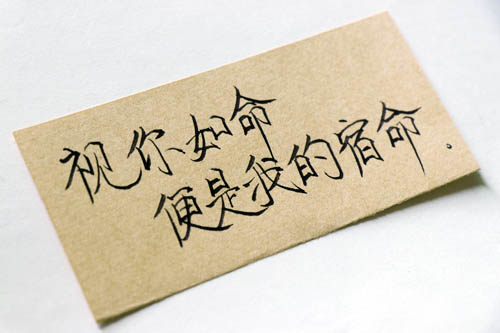 视你如命
便是我的宿命.